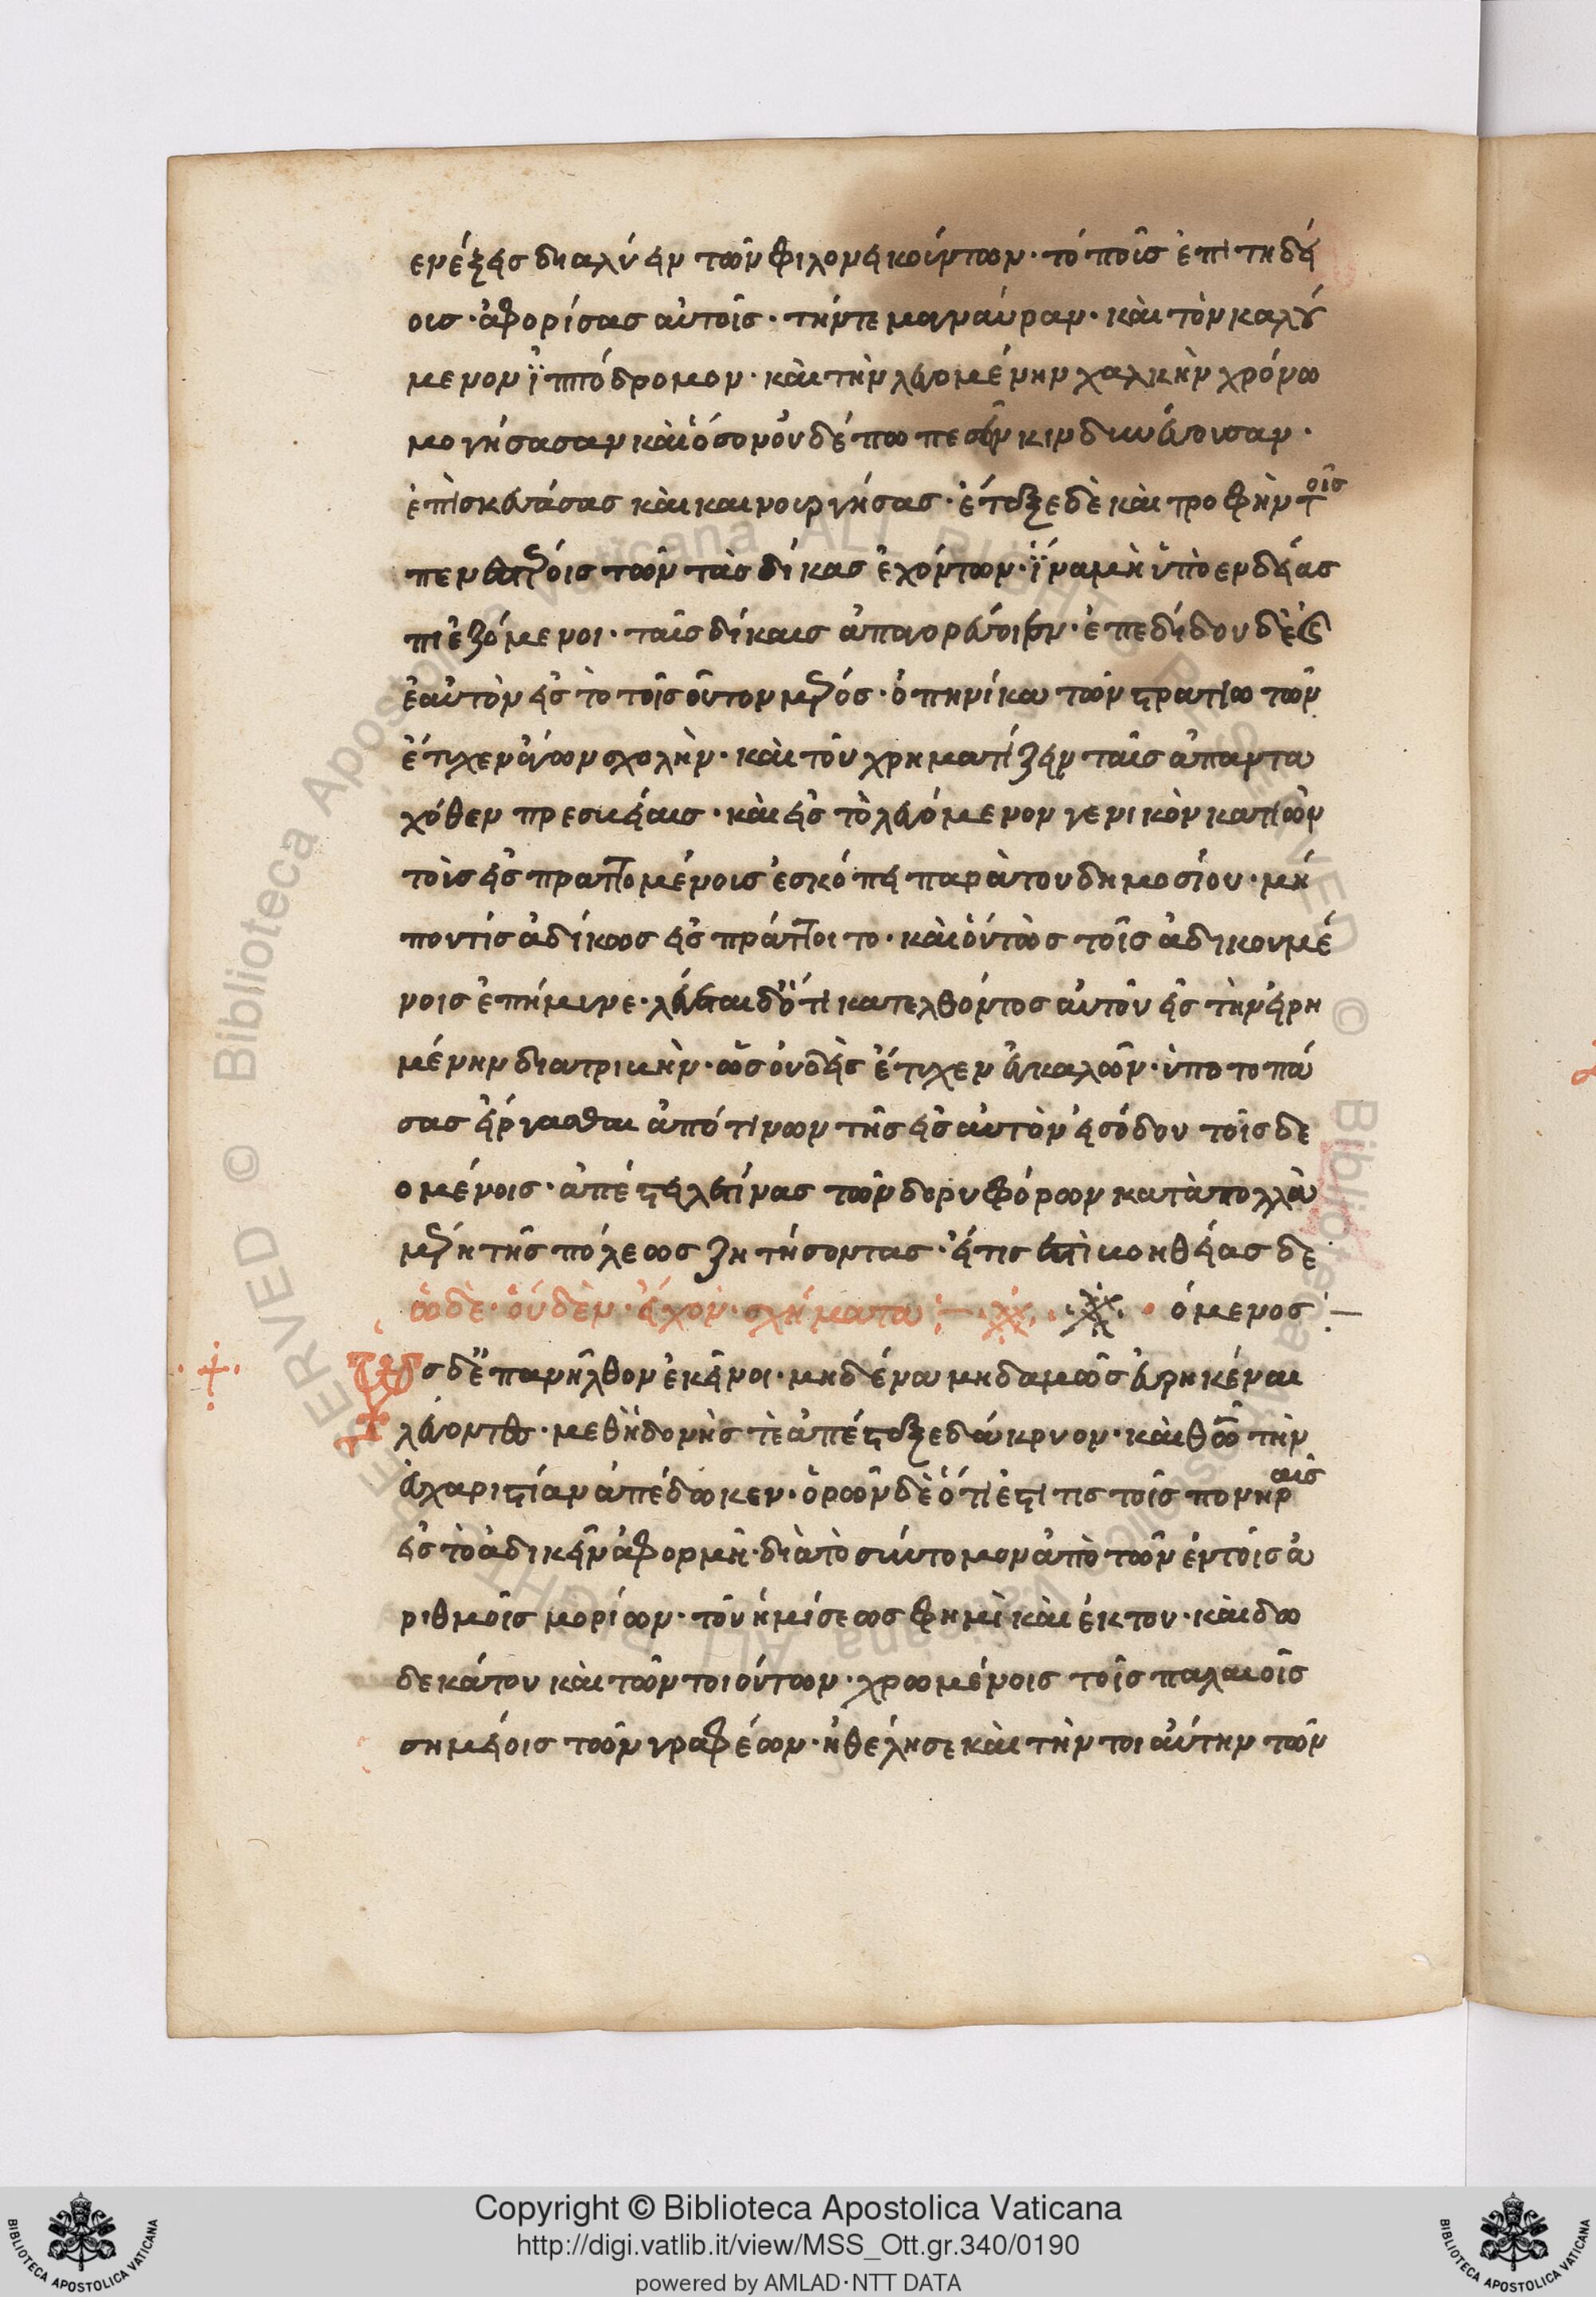 ενέξεις διαλύειν τῶν φιλονεικούντων· τόποις ἐπιτηδεί
οις· ἀφορίσας αὐτοῖς· τήν τε μαγναύραν· καὶ τὸν καλού
μενον ἱππόδρομον· καὶ τὴν λεγομένην χαλκὴν χρόνω
μογήσασαν καὶ ὅσον οὐδέπω πεσεῖν κινδυνεύουσαν·
ἐπισκευάσας καὶ καινουργήσας· ἔταξε δὲ καὶ τροφὴν τοῖς
πενεστέροις τῶν τὰς δίκας ἐχόντων· ἵνα μὴ ὑπὸ ενδείας
πιεζόμενοι· ταῖς δίκαις ἀπαγορεύοιεν· ἐπεδίδου δὲ καὶ
ἑαυτὸν εἰς τὸ τοιοῦτον μέρος· ὁπηνίκα τῶν στρατιωτῶν
ἔτυχεν ἄγων σχολὴν· καὶ τοῦ χρηματίζειν ταῖς ἀπαντα
χόθεν πρεσβείαις· καὶ εἰς τὸ λεγόμενον γενικὸν κατιὼν
τοὶς εἰσπραττομένοις ἐσκόπει παρὰ του δημοσίου· μή
που τίς ἀδίκως εἰσπράττοιτο· καὶ ὅντως τοῖς ἀδικουμέ
νοις ἐπήμυνε· λέγεται δὲ ὅτι κατελθόντος αὐτοῦ εἰς τὴν εἰρη
μένην διατριβὴν· ὡς οὐδεὶς ἔτυχεν ἐγκαλῶν· ὑποτοπά
σας εἴργασθαι ἀπό τινων τῆς εἰς αὐτὸν εἰσόδου τοῖς δε
ομένοις· ἀπέστειλέ τινας τῶν δορυφόρων κατὰ πολλὰ
μέρη τῆς πόλεως ζητήσοντας· εἴ τις ἐστὶ βοηθείας δε
ὧδε· οὐδὲν· ἔχον· σχήματα ÷– ·※· · ※ · όμενος :–
Ὡς δὲ ἐπανῆλθον ἐκεῖνοι· μηδένα μηδαμῶς εὑρηκέναι
λέγοντες· μεθ' ἡδονὴς τὲ ἀπέσταξε δάκρυον· καὶ θεῷ τὴν
εὐχαριστίαν ἀπέδωκεν· ὁρῶν δὲ ὅτι ἔστι τις τοῖς πονηροῖς
εἰς τὸ ἀδικεῖν ἀφορμὴ· διὰ τὸ σύντομον ἀπὸ τῶν ἐν τοῖς ἀ
ριθμοῖς μορίων· τοῦ ἡμίσεως φημὶ καὶ ἕκτου· καὶ δω
δεκάτου καὶ τῶν τοιούτων· χρωμένοις τοῖς παλαιοῖς
σημείοις τῶν γραφέων· ἠθέλησε καὶ τὴν τοιαύτην τῶν
Copyright © Biblioteca Apostolica Vaticana
http://digi.vatlib.it/view/MSS_Ott.gr.340/0190
powered by AMLAD·NTT DATA